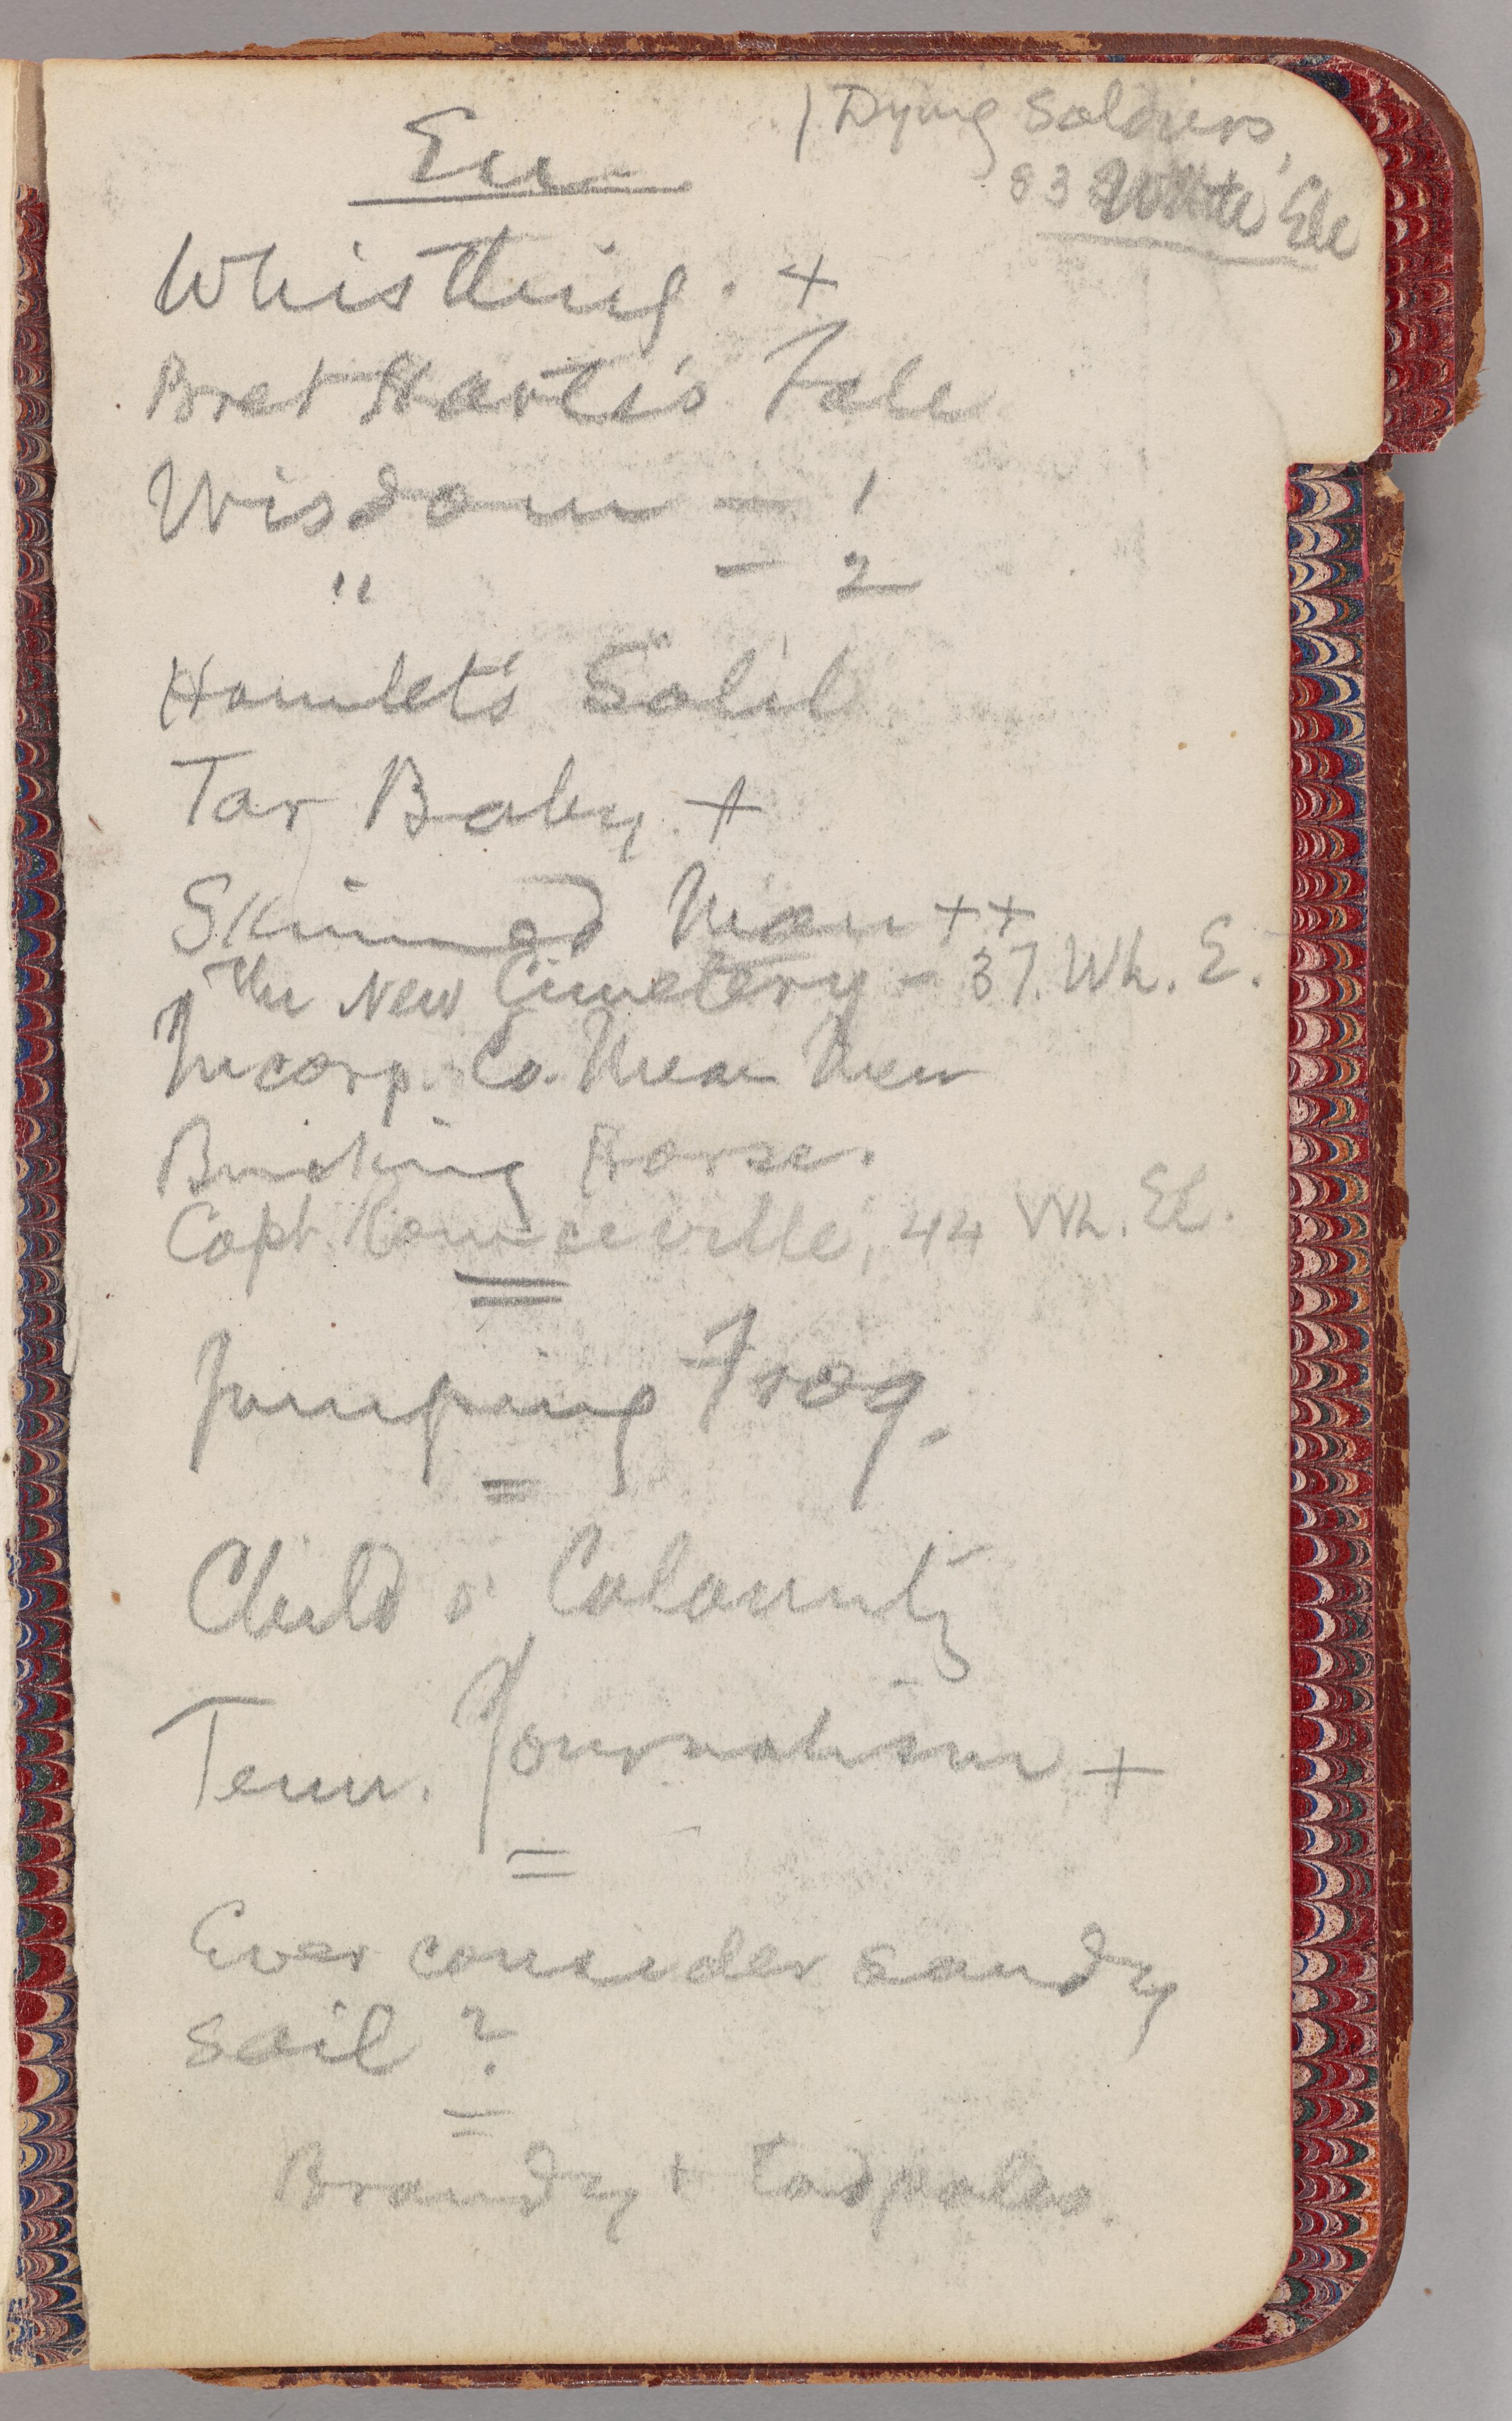 Dying Soldiers,
83 White Ele
Whistling. +
Bret Harte's Tale
Wisdom — 1
" — 2
Hamlet's Solil
Tar Baby. +
Skinned Man ++
The New Cimetery — 37. Wh. E.
Incorp. Co. Mean Men
Bucking Horse.
Capt. 44 Wh. El.
Jumping Frog.
Child o' Calamity
Tenn. Journalism +
Ever consider sandy
soil?
Brandy + tadpoles.